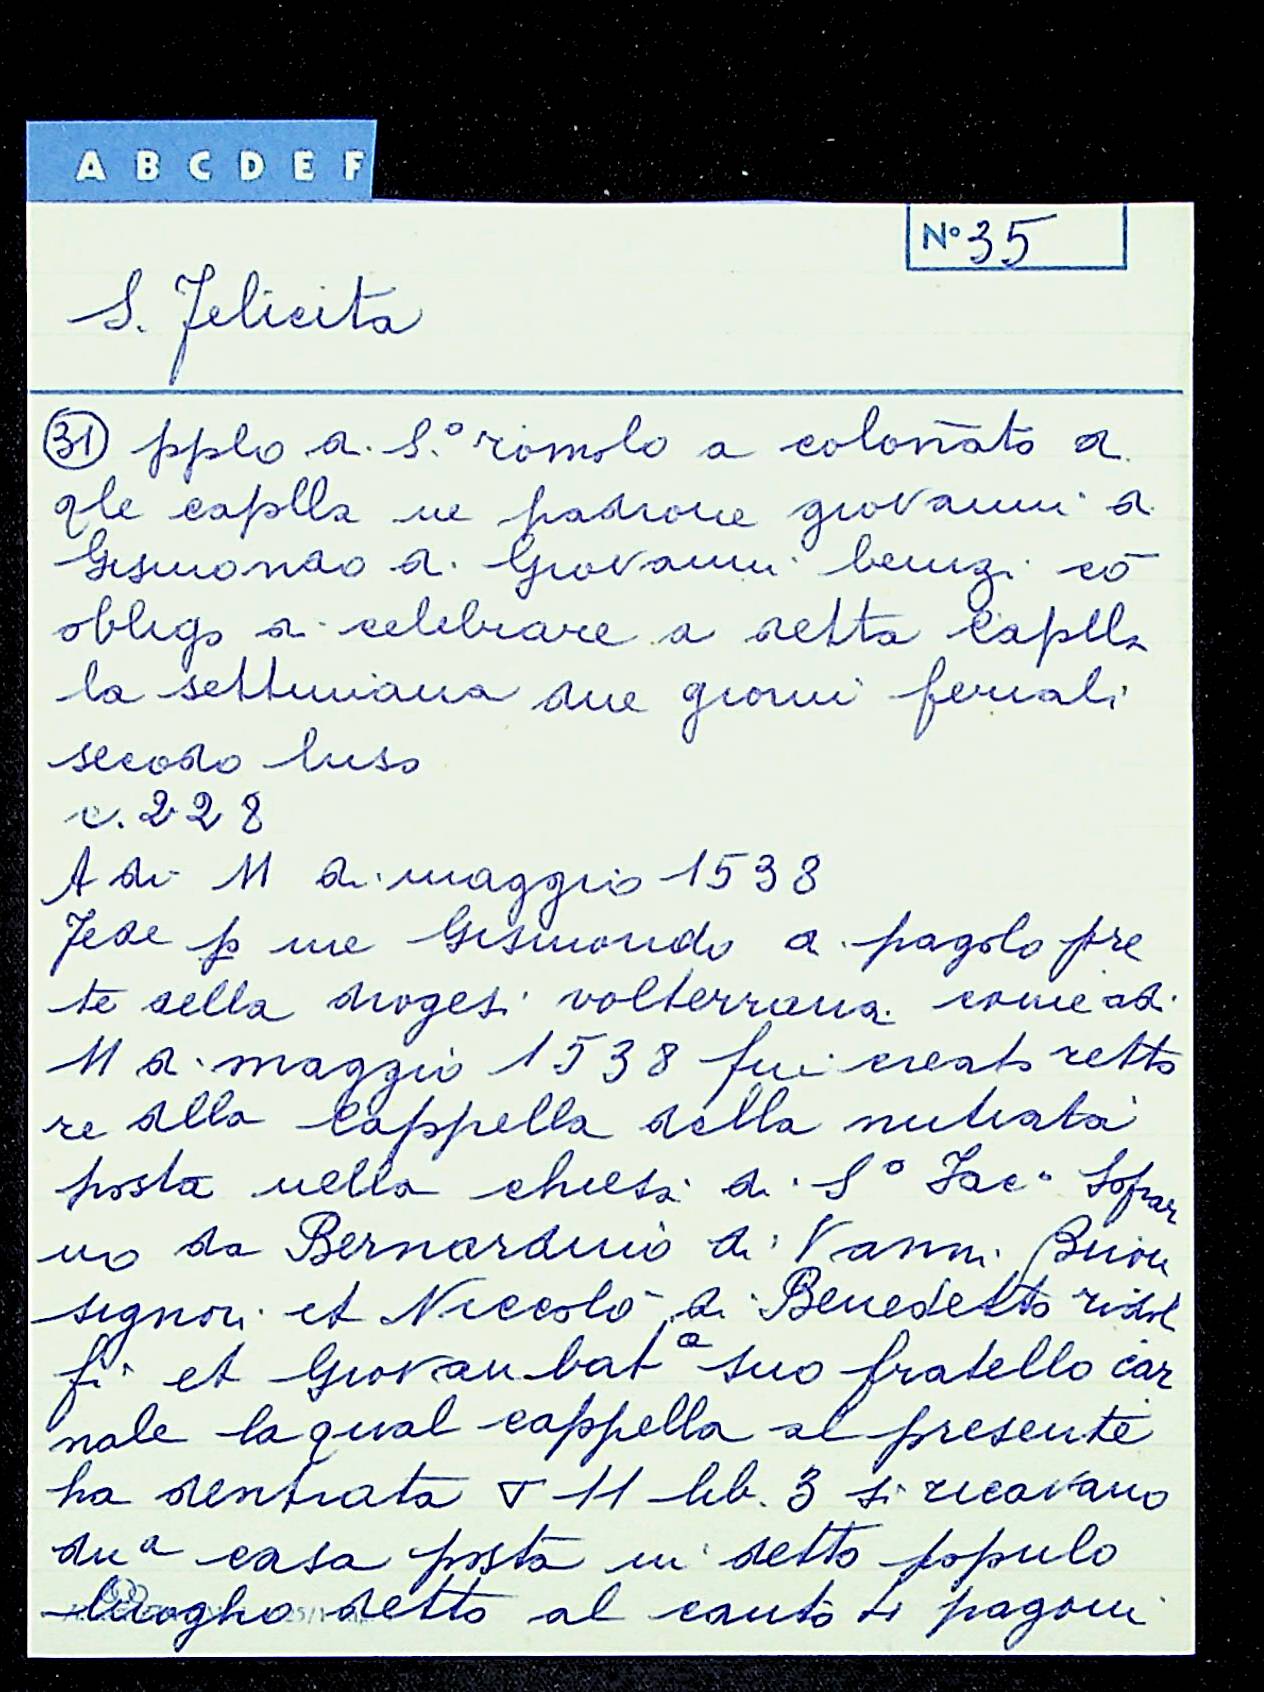 A B C D E F
Nº 35
S. Felicita
31 pplo di S.º romolo a colonato d
qle caplla ne padrone giovanni di
Gismondo di Giovanni benzi cō
obligo di celebrare a detta Caplla
la settimana due giorni feriali
secodo luso
c. 228
A di 11 di maggio 1538
Fede p me Gismondo di pagolo pre
te della diogesi volterrana come adi
11 di maggio 1538 fui creato retto
re dlla Cappella della nutiata
posta nella chiesa di Sº Jacº Sopar
no da Bernardino di Vanni Buon
signori et Niccolò di Benedetto ridol
fi et Giovanbatª suo fratello car
nale la qual cappella al presente
ha dentrata ▽ 11 lib. 3 si ricavano
duª casa posta in detto populo
luogho detto al canto di pagoni